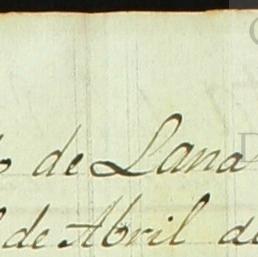 de Lana
de Abril de